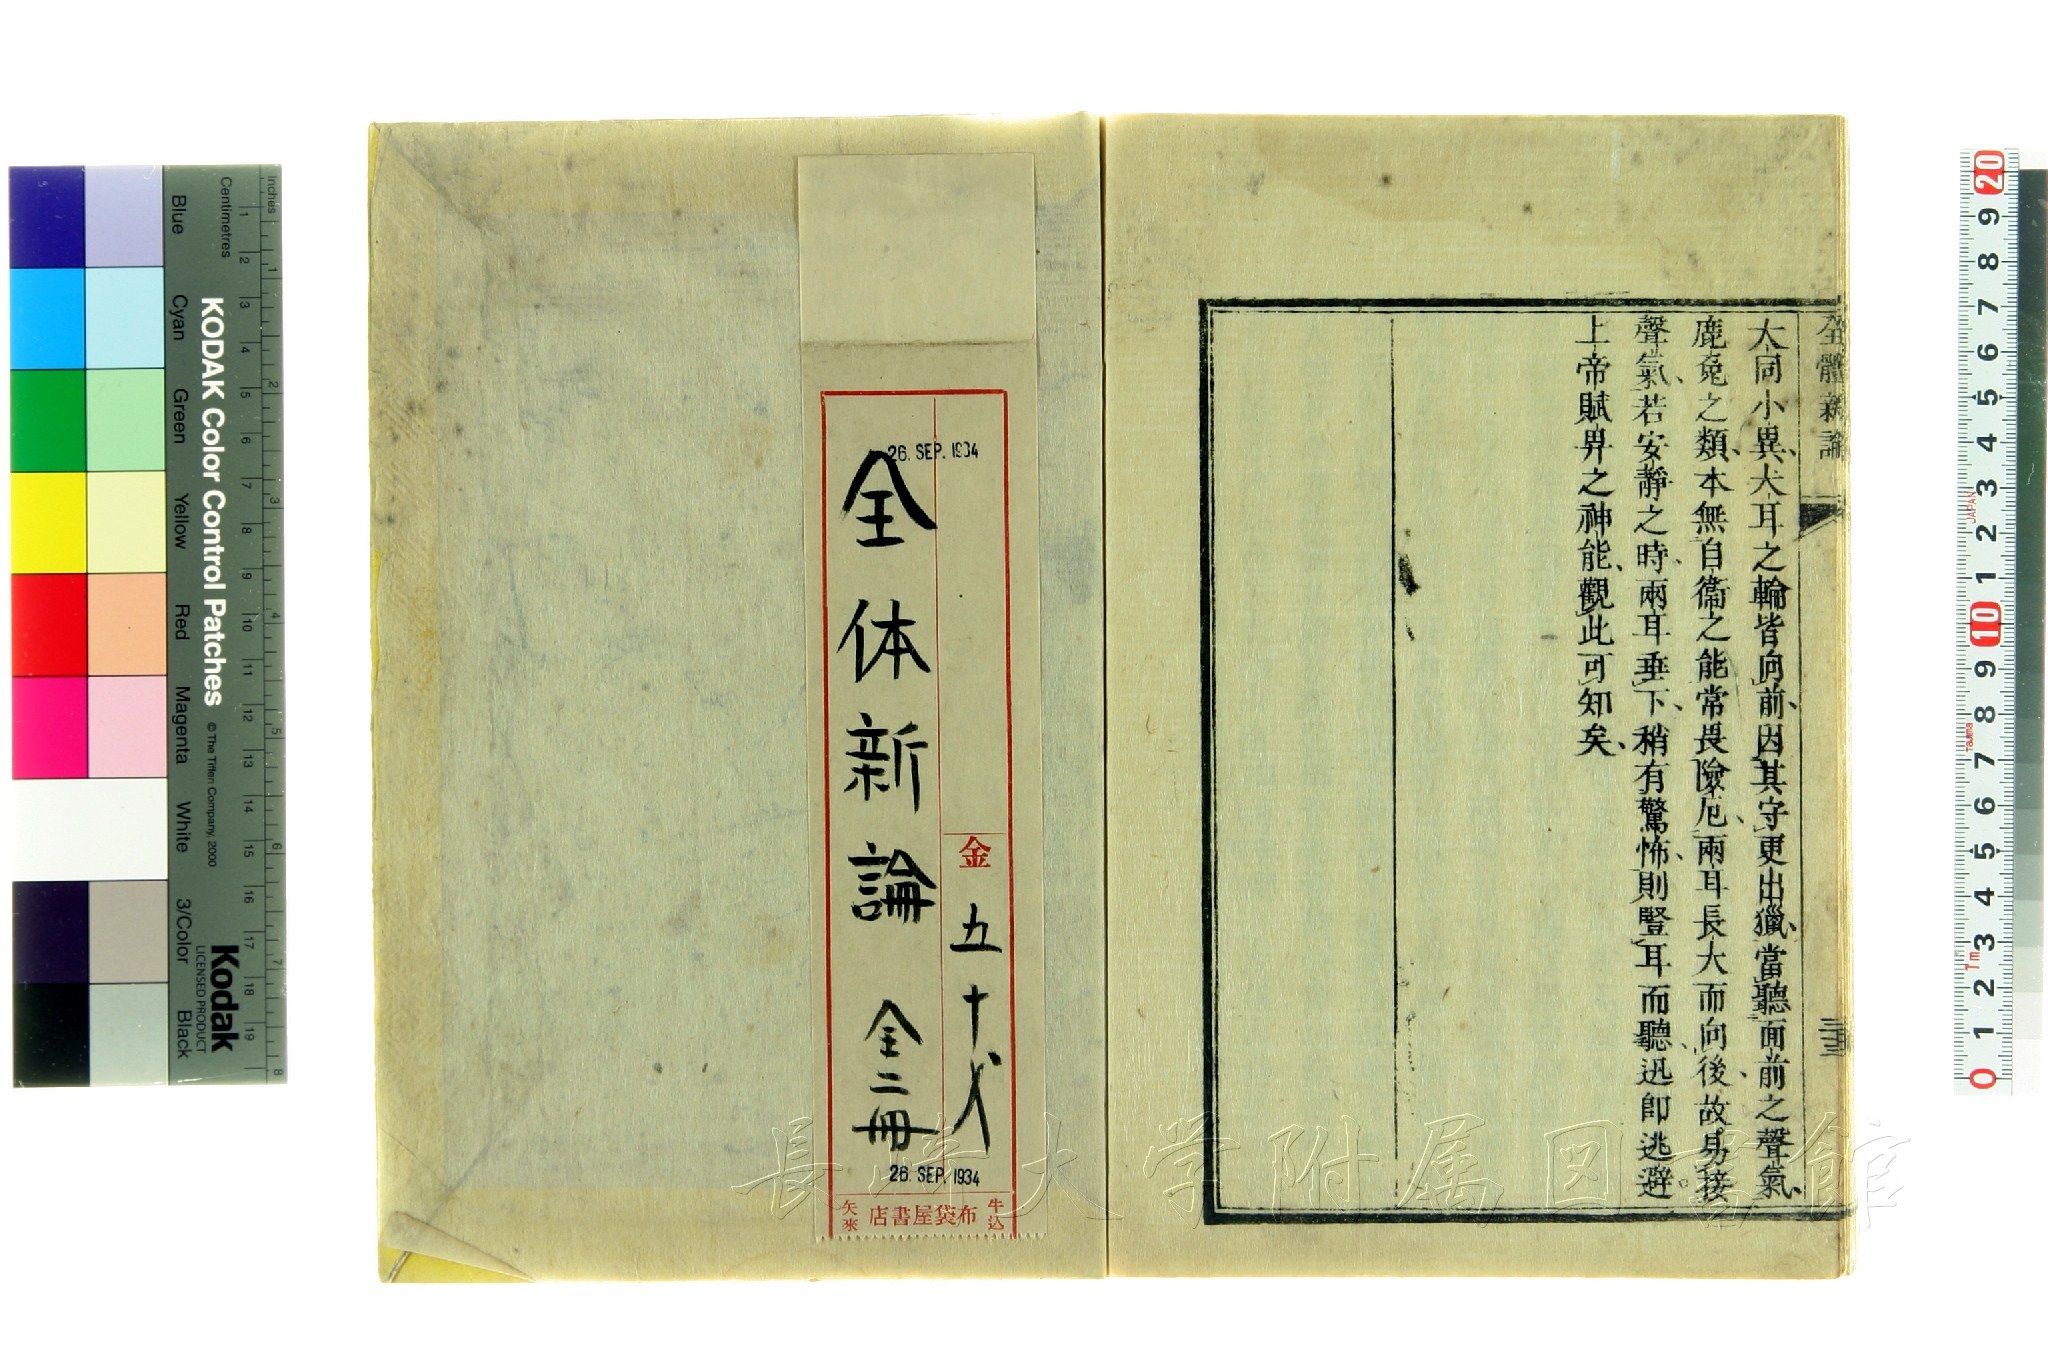 全體新論
三五
大同小異、犬耳之輪皆向前、因其守更出獵、當聽面前之聲氣、
鹿兔之類、本無自衞之能常畏險厄、兩耳長大而向後、故易接
聲氣、若安靜之時兩耳垂下、稍有驚怖、則豎耳而聽、迅即逃避
上帝賦畀之神能、觀此可知矣、
26. SEP. 1934
金 五十戋
全体新論 全二冊
26. SEP. 1934
牛込
店書屋袋布
矢來
長崎大学附属図書館
Inches
Centimetres
KODAK Color Control Patches
© The Tiffen Company, 2000
Kodak
LICENSED PRODUCT
Blue
Cyan
Green
Yellow
Red
Magenta
White
3/Color
Black
1 2 3 4 5 6 7 8
1 2 3 4 5 6 7 8 9 10 11 12 13 14 15 16 17 18 19
20 9 8 7 6 5 4 3 2 1 10 9 8 7 6 5 4 3 2 1 0
JAPAN
Tajima
7m